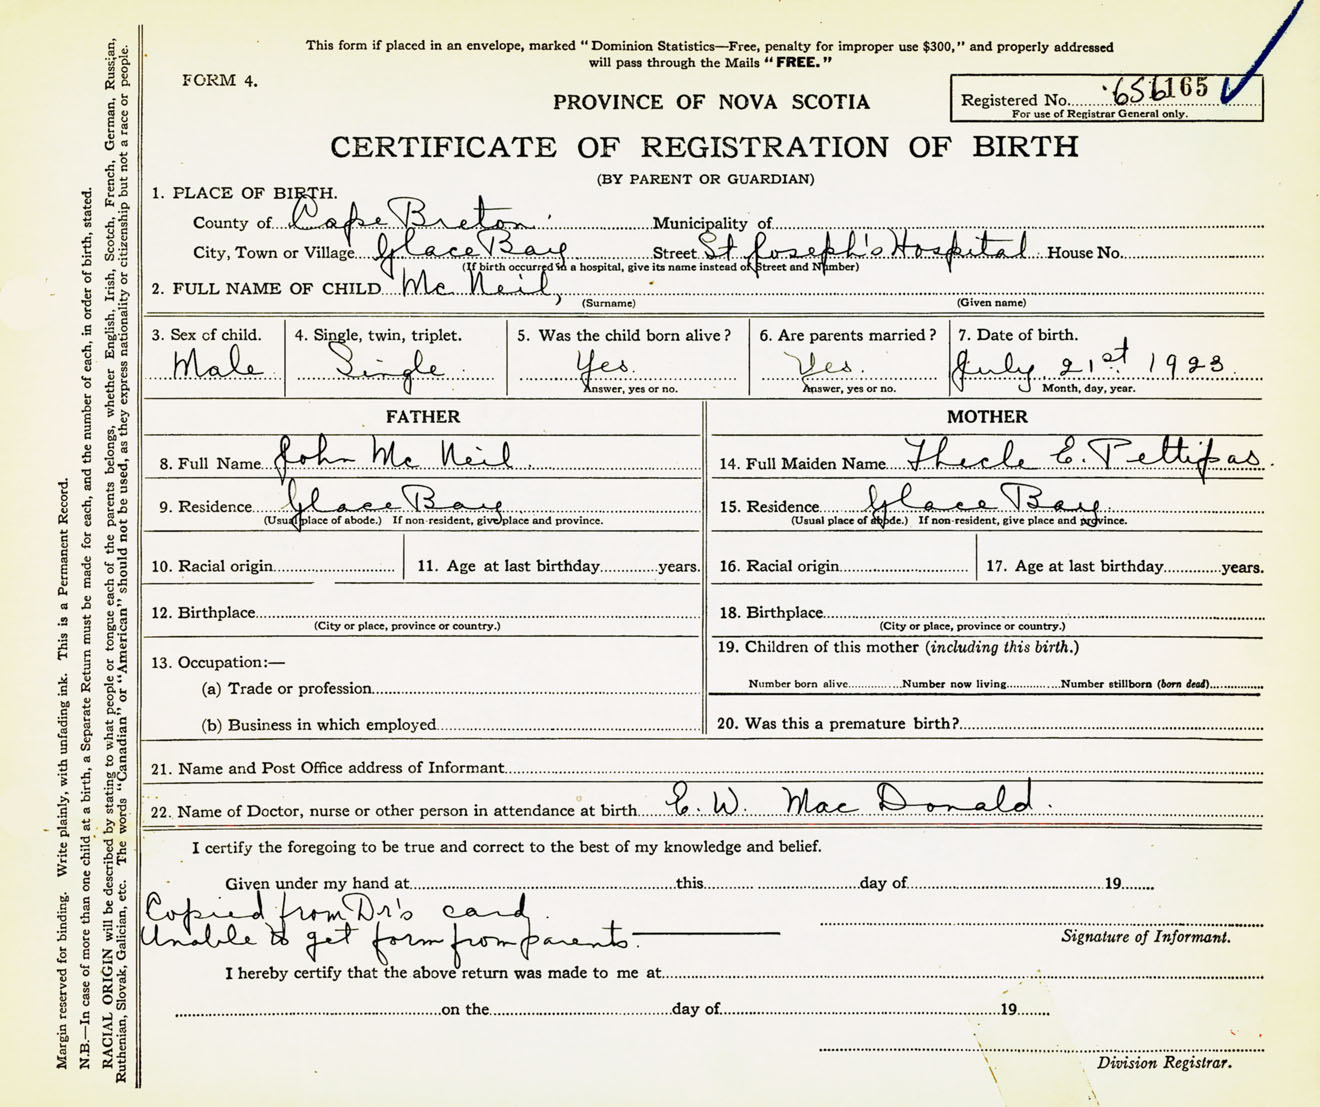 This form if placed in an envelope, marked "Dominion Statistics—Free, penalty for improper use $300," and properly addressed
will pass through the Mails "FREE."
FORM 4.
PROVINCE OF NOVA SCOTIA
Registered No. 656165
For use of Registrar General only.
CERTIFICATE OF REGISTRATION OF BIRTH
(BY PARENT OR GUARDIAN)
1. PLACE OF BIRTH.
County of Cape Breton Municipality of
City, Town or Village Glace Bay Street St Joseph's Hospital House No.
(If birth occurred in a hospital, give its name instead of Street and Number)
2. FULL NAME OF CHILD Mc Neil,
(Surname) (Given name)
3. Sex of child. 4. Single, twin, triplet. 5. Was the child born alive? 6. Are parents married? 7. Date of birth.
Male Single Yes. Yes. July 21st 1923
Answer, yes or no. Answer, yes or no. Month, day, year.
FATHER MOTHER
8. Full Name John Mc Neil. 14. Full Maiden Name Thecle E. Pettipas.
9. Residence Glace Bay 15. Residence Glace Bay
(Usual place of abode.) If non-resident, give place and province. (Usual place of abode.) If non-resident, give place and province.
10. Racial origin 11. Age at last birthday years. 16. Racial origin 17. Age at last birthday years.
12. Birthplace 18. Birthplace
(City or place, province or country.) (City or place, province or country.)
19. Children of this mother (including this birth.)
13. Occupation:—
(a) Trade or profession Number born alive Number now living Number stillborn (born dead)
(b) Business in which employed 20. Was this a premature birth?
21. Name and Post Office address of Informant
22. Name of Doctor, nurse or other person in attendance at birth E. W. Mac Donald.
I certify the foregoing to be true and correct to the best of my knowledge and belief.
Given under my hand at this day of 19
Copied from Dr's card.
Unable to get form from parents.
Signature of Informant.
I hereby certify that the above return was made to me at
on the day of 19
Division Registrar.
Margin reserved for binding. Write plainly, with unfading ink. This is a Permanent Record.
N.B.—In case of more than one child at a birth, a Separate Return must be made for each, and the number of each, in order of birth, stated.
RACIAL ORIGIN will be described by stating to what people or tongue each of the parents belongs, whether English, Irish, Scotch, French, German, Russian,
Ruthenian, Slovak, Galician, etc. The words "Canadian" or "American" should not be used, as they express nationality or citizenship but not a race or people.